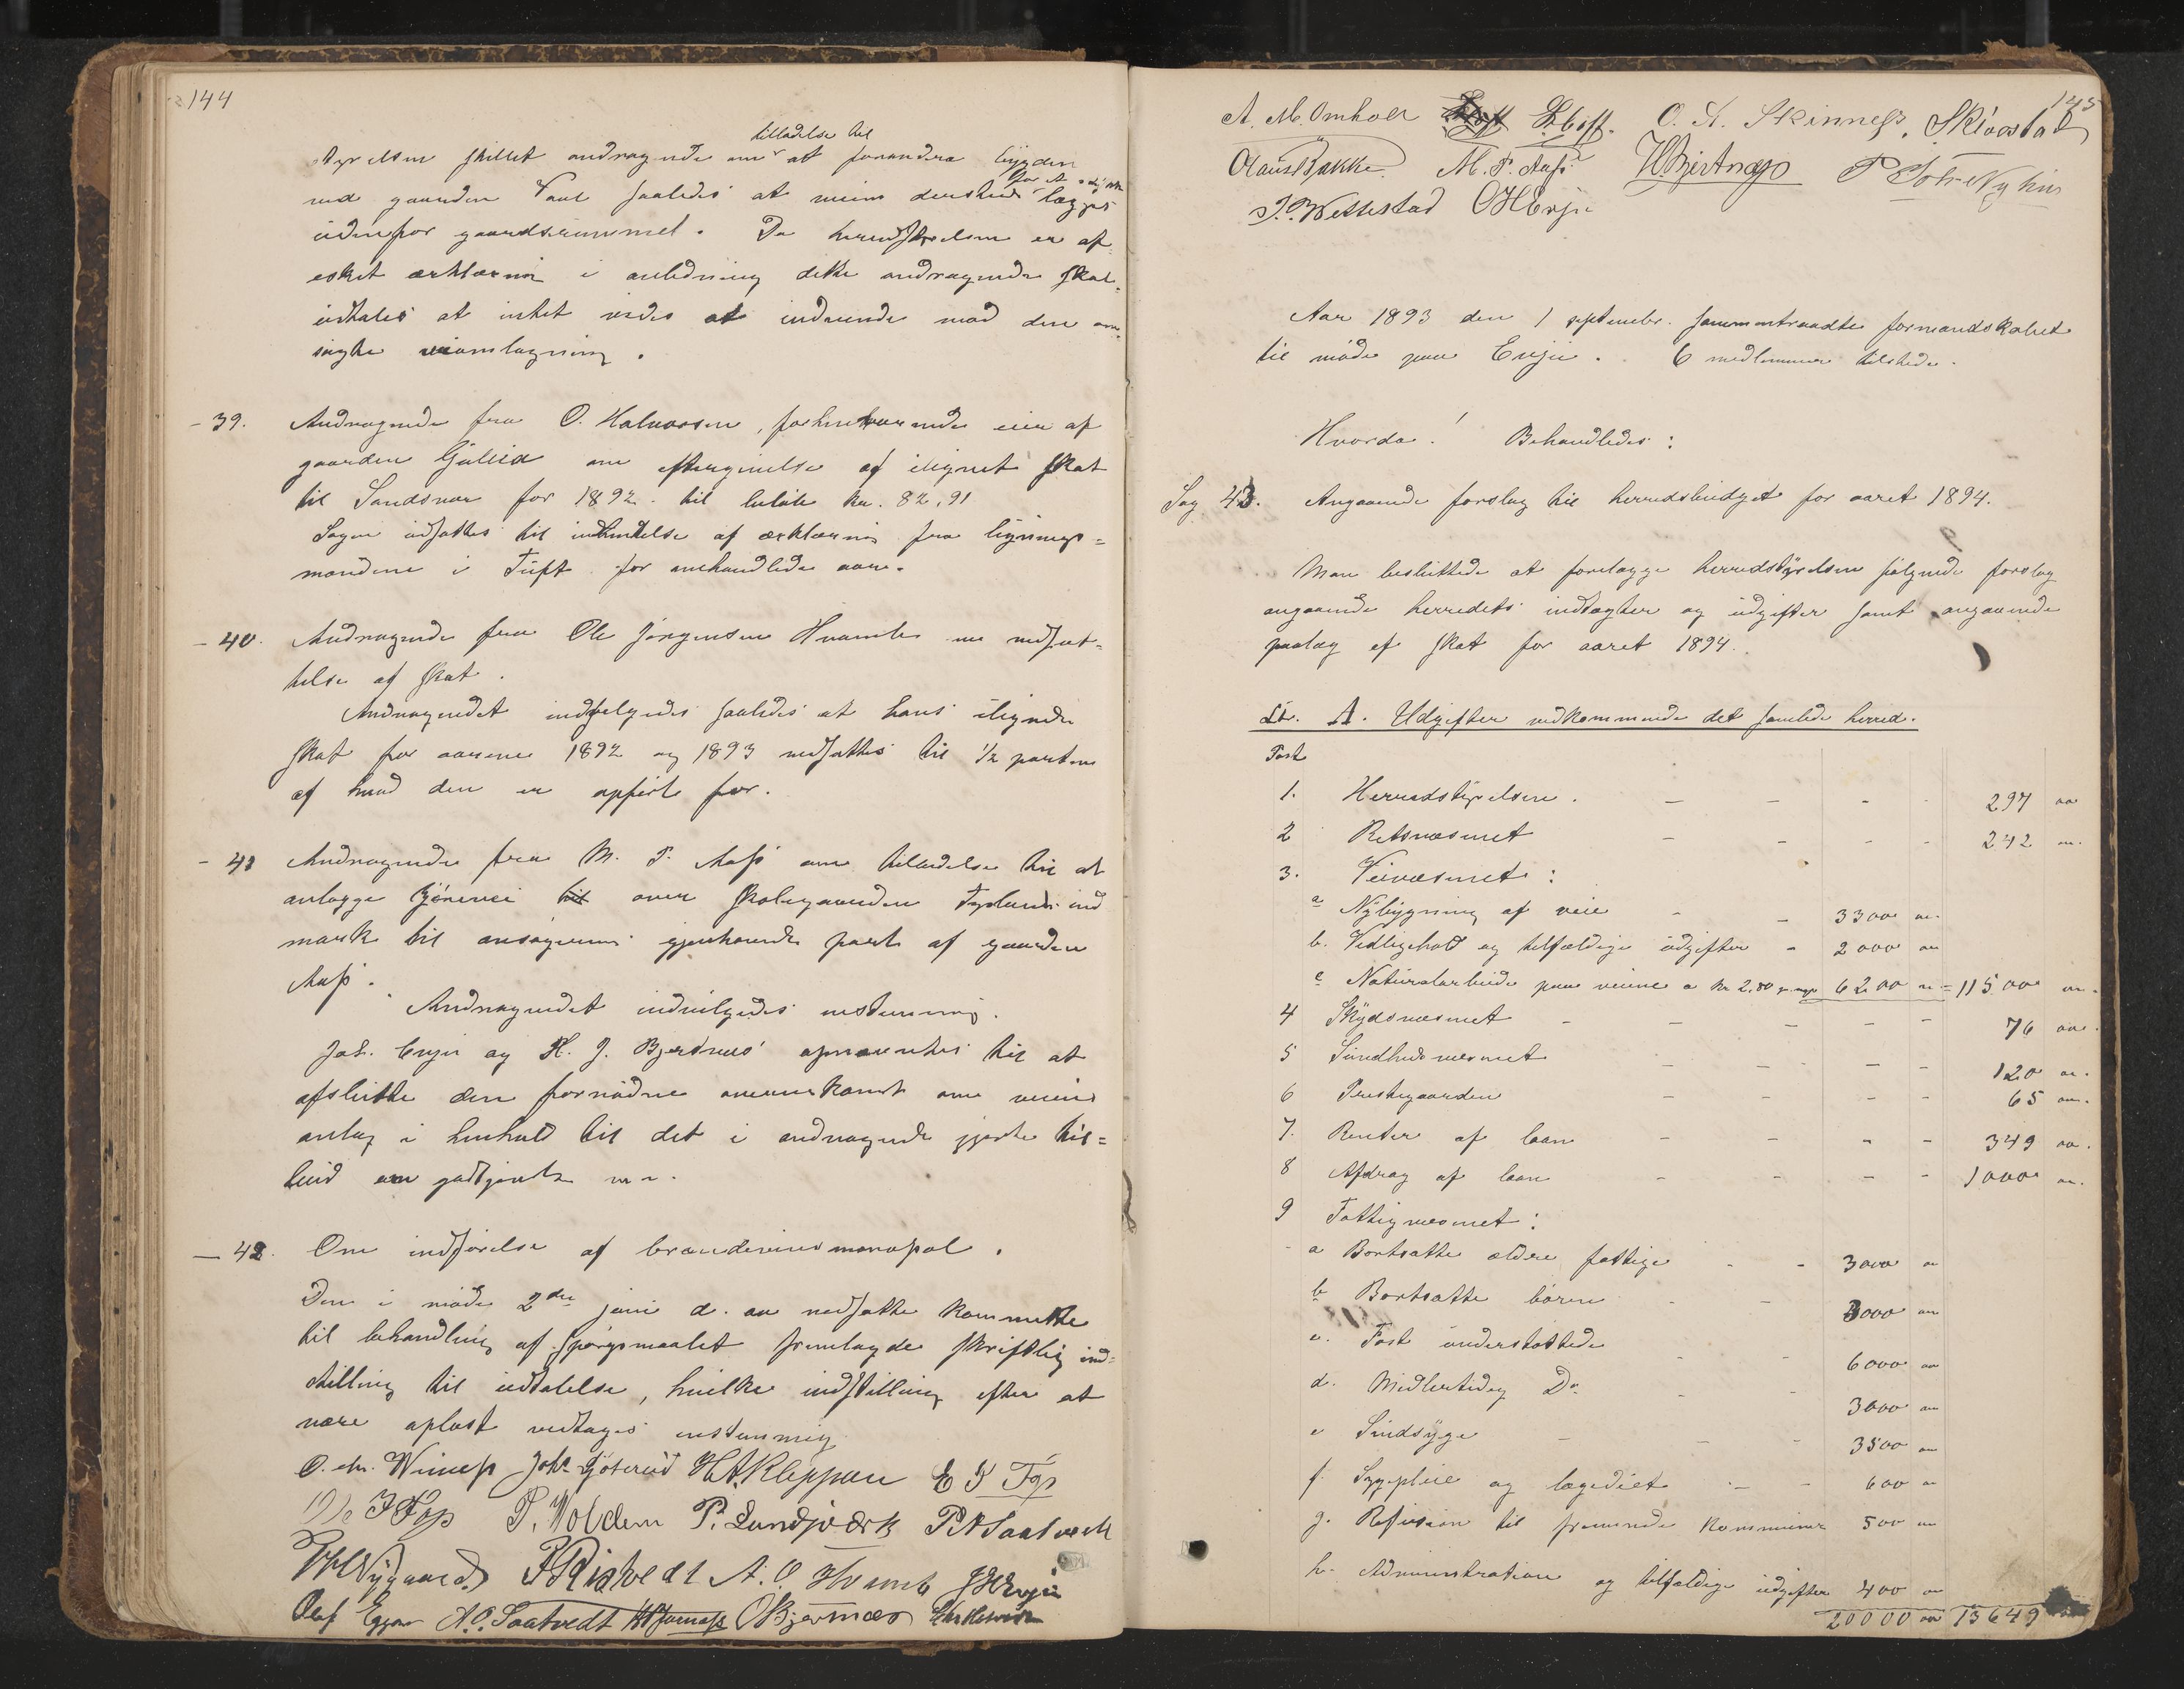 144
tilladelse til
styrelsen stillet andragende om at forandre bygden
ved gaarden Vaal saaledes at veien dersteds lægges
udenfor gaardsrummet. Da herredstyrelsen er af-
esket erklæring i anledning dette andragende skal
udtales at intet vides at indvende mod den om
søgte veiomlægning.
- 39. Andragende fra O. Halvorsen, forhenværende eier af
gaarden Gullid om eftergivelse af ilignet skat
til Sandsvær for 1892 til beløb kr. 82,91
Sagen udsættes til indhentelse af erklæring fra lignings=
mændene i Tuft for omhandlede aar.
- 40. Andragende fra Ole Jørgensen Hvamb om nedsæt=
telse af skat.
Andragendet indvilgedes saaledes at hans ilignede
skat for aarene 1892 og 1893 nedsættes til 1/2 parten
af hvad den er opført for.
- 41 Andragende fra M. P. Aass om tilladelse til at
anlægge kjørevei til over skolegaarden ind
mark til ansøgerens gjenhavende part af gaarden
Aass.
Andragendet indvilgedes enstemmig.
Joh. Evju og H. J. Bjertnes opnævntes til at
afslutte den fornødne overenskomst om veiens
anlæg i henhold til det i andragende gjorte til=
bud om godtgjørelse m. v.
- 42. Om indførelse af brændevinsmonopol.
Den i møde 2den juni d. aa nedsatte komitte
til behandling af spørgsmaalet fremlagde skriftlig ind=
stilling til udtalelse, hvilke indstilling efter at
være oplæst vedtages enstemmig
O. Chr. Winess Joh. Gjøterud H. A. Kleppen E J Top
J Fop P. Wolden P. Lundjordet P. A Saatvedt
Nygaard P. Ristvedt A. O Hvamb J H Evju
Oluf A. O. Saatvedt O Bjermæs
145
A. M. Omholt L. Hoff. O. A. Skinness. Skivestad
Olaus Bakke M. P. Aass H Bjertnæs P
P. Wettestad O H Evju
Aar 1893 den 1 septembr. sammentraadte formandskabet
til møde paa Evju. 6 medlemmer tilstede.
Hvorda! Behandledes:
Sag 43. Angaaende forslag til herredsbudget for aaret 1894.
Man besluttede at forelægge herredstyrelsen følgende forslag
angaaende herredets indtægter og udgifter samt angaaende
paalæg af skat for aaret 1894.
Lit. A. Udgifter vedkommende det samlede herred.
Post
1. Herredstyrelsen. — — - - 297 oo
2 Retsvæsenet — - - - 242 oo
3. Veivæsenet:
a Nybygning af veie - - 3300 oo
b. Vedligehold og tilfældige udgifter - 2000 oo
c Naturalarbeide paa veiene a kr 2,80 6200 oo = 11500 oo
4 Skydsvæsenet - — — — - 76 oo
5 Sundhedsvæsenet — — — - 120 oo
6 Prestegaarden — — - - 65 oo
7. Renter af laan — — - - 349 oo
8 Afdrag af laan - - — - 1000 oo
9 Fattigvæsenet:
a Bortsatte ældre fattige - - 3000 oo
b Bortsatte børn - — 3000 oo
c. Fast understøttede - - 6000 oo
d. Midlertidig Do - - 3000 oo
e Sindsyge — — - 3500 oo
f. Sygepleie og lægediet — - 600 oo
g. Refusion til fremmede kommuner 500 oo
h. Administration og tilfældige udgifter 400 oo
20000 oo 13649